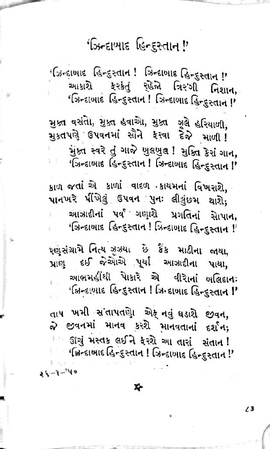 'ઝિન્દાબાદ હિન્દુસ્તાન !'
'ઝિન્દાબાદ હિન્દુસ્તાન ! ઝિન્દાબાદ હિન્દુસ્તાન !'
આકાશે ફરકંતું રહેજો ત્રિરંગી નિશાન,
'ઝિન્દાબાદ હિન્દુસ્તાન ! ઝિન્દાબાદ હિન્દુસ્તાન !'
મુક્ત વસંતો, મુક્ત હવાઓ, મુક્ત ઝૂલે હરિયાળી,
મુક્તપણે ઉપવનમાં સૌને ફરવા દેજે માળી !
મુક્ત સ્વરે તું ગાજે બુલબુલ ! મુક્તિ કેરાં ગાન,
'ઝિન્દાબાદ હિન્દુસ્તાન ! ઝિન્દાબાદ હિન્દુસ્તાન !'
કાળ જતાં એ કાળાં વાદળ કાયમનાં વિખરાશે,
પાનખરે પીંખેલું ઉપવન પુનઃ લીલુંછમ થાશે;
આઝાદીનાં પર્વ ગણાશે પ્રગતિનાં સોપાન,
'ઝિન્દાબાદ હિન્દુસ્તાન ! ઝિન્દાબાદ હિન્દુસ્તાન !'
રણસંગ્રામે નિત્ય ઝૂઝ્યા છે કૈંક માડીના જાયા,
પ્રાણ દઈ જેઓએ પૂર્યા આઝાદીના પાયા,
આભમહીંથી પોકારે એ વીરોનાં બલિદાનઃ
'ઝિન્દાબાદ હિન્દુસ્તાન ! ઝિન્દાબાદ હિન્દુસ્તાન !'
તાપ ખમી સંતાપતણો એક નવું ઘડાશે જીવન,
જે જીવનમાં માનવ કરશે માનવતાનાં દર્શન;
ઊંચું મસ્તક લઈને ફરશે આ તારાં સંતાન !
'ઝિન્દાબાદ હિન્દુસ્તાન ! ઝિન્દાબાદ હિન્દુસ્તાન !'
૨૬-૧-'૫૦
૮૩